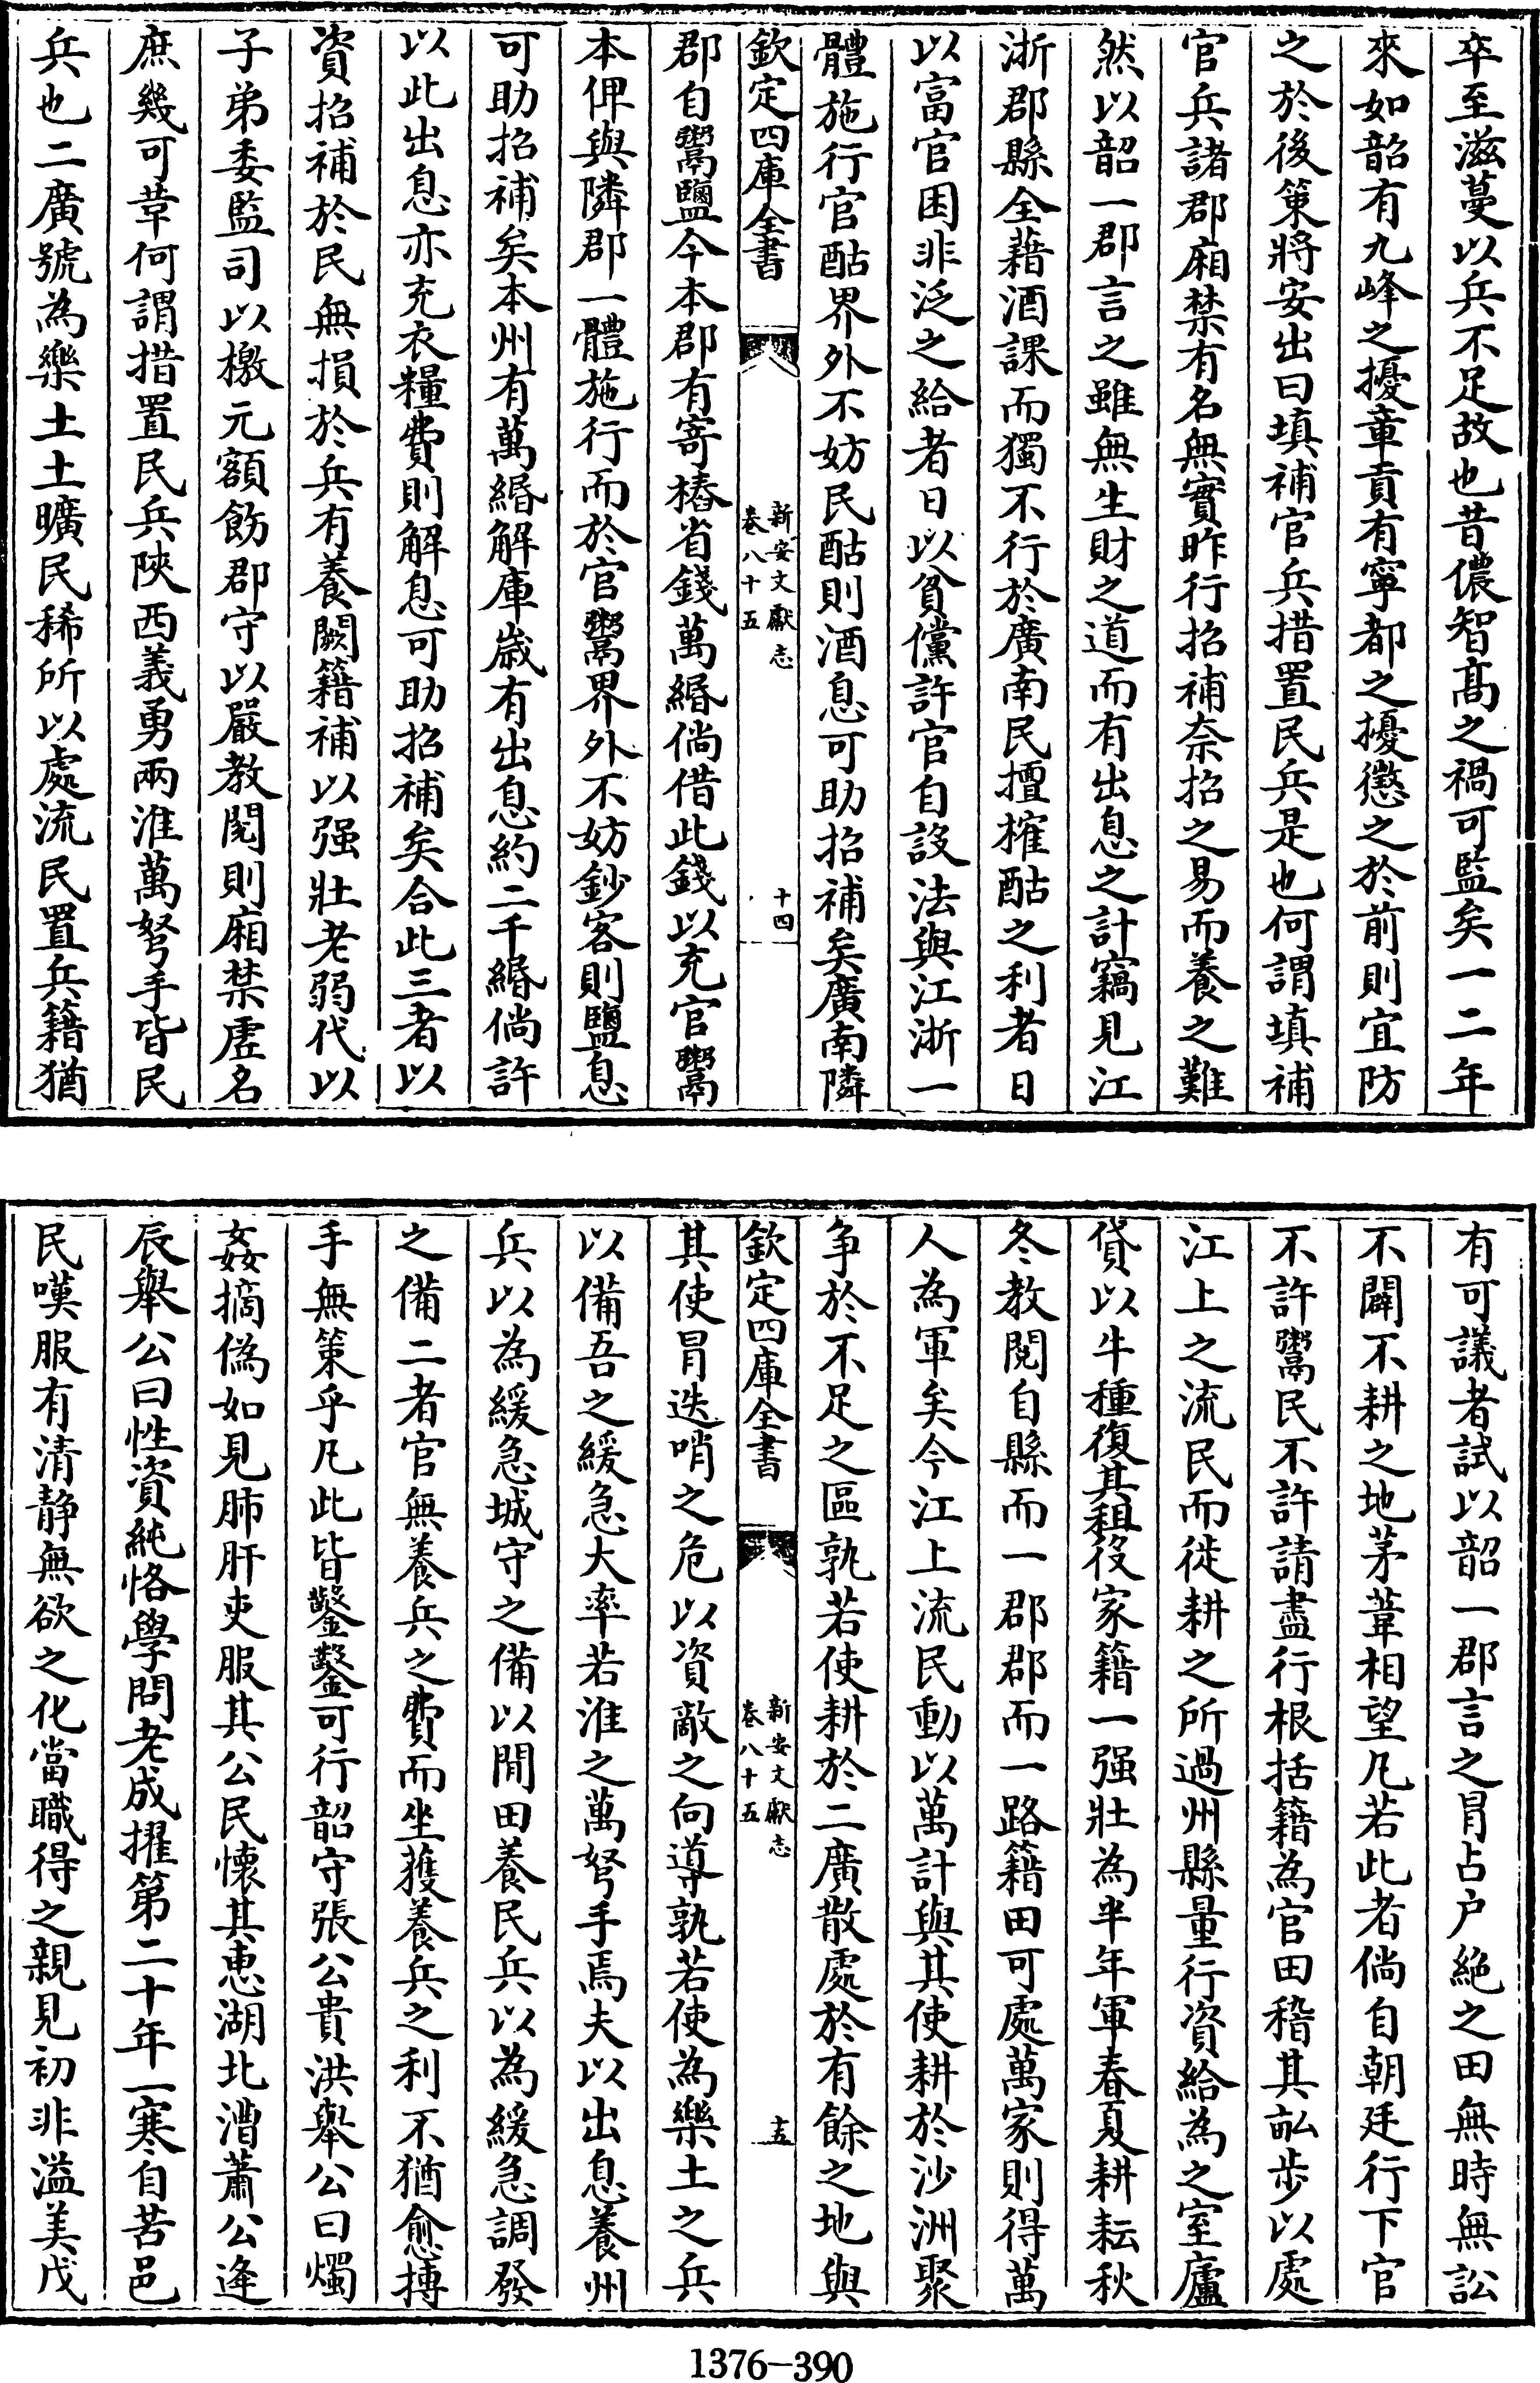 卒至滋蔓以兵不足故也昔儂智髙之禍可監矣一二年
來如韶有九峰之擾章貢有寧都之擾懲之於前則宜防
之於後策將安出曰填補官兵措置民兵是也何謂填補
官兵諸郡廂禁有名無實昨行招補奈招之易而養之難
然以韶一郡言之雖無生財之道而有出息之計竊見江
浙郡縣全藉酒課而獨不行於廣南民擅榷酤之利者日
以富官困非泛之給者日以貧儻許官自設法與江浙一
體施行官酤界外不妨民酤則酒息可助招補矣廣南隣
欽定四庫全書
新安文獻志
卷八十五
十四
郡自鬻鹽今本郡有寄樁省錢萬緡倘借此錢以充官鬻
本俾與隣郡一體施行而於官鬻界外不妨鈔客則鹽息
可助招補矣本州有萬緡解庫嵗有出息約二千緡倘許
以此出息亦充衣糧費則解息可助招補矣合此三者以
資招補於民無損於兵有養闕籍補以强壯老弱代以
子弟委監司以檄元額飭郡守以嚴教閲則廂禁虚名
庶幾可革何謂措置民兵陜西義勇兩淮萬弩手皆民
兵也二廣號為樂土土曠民稀所以處流民置兵籍猶
有可議者試以韶一郡言之冐占户絶之田無時無訟
不闢不耕之地茅葦相望凡若此者倘自朝廷行下官
不許鬻民不許請盡行根括籍為官田稽其畆步以處
江上之流民而徙耕之所過州縣量行資給為之室廬
貸以牛種復其租役家籍一强壯為半年軍春夏耕耘秋
冬教閱自縣而一郡郡而一路籍田可處萬家則得萬
人為軍矣今江上流民動以萬計與其使耕於沙洲聚
争於不足之區孰若使耕於二廣散處於有餘之地與
欽定四庫全書
新安文獻志
卷八十五
十五
其使冐迭哨之危以資敵之向導孰若使為樂土之兵
以備吾之緩急大率若淮之萬弩手焉夫以出息養州
兵以為緩急城守之備以閒田養民兵以為緩急調發
之備二者官無養兵之費而坐獲養兵之利不猶愈搏
手無策乎凡此皆鑿鑿可行韶守張公貴洪舉公曰燭
姦摘偽如見肺肝吏服其公民懷其恵湖北漕蕭公逄
辰舉公曰性資純恪學問老成擢第二十年一寒自苦邑
民嘆服有清静無欲之化當職得之親見初非溢美戊
1376—390